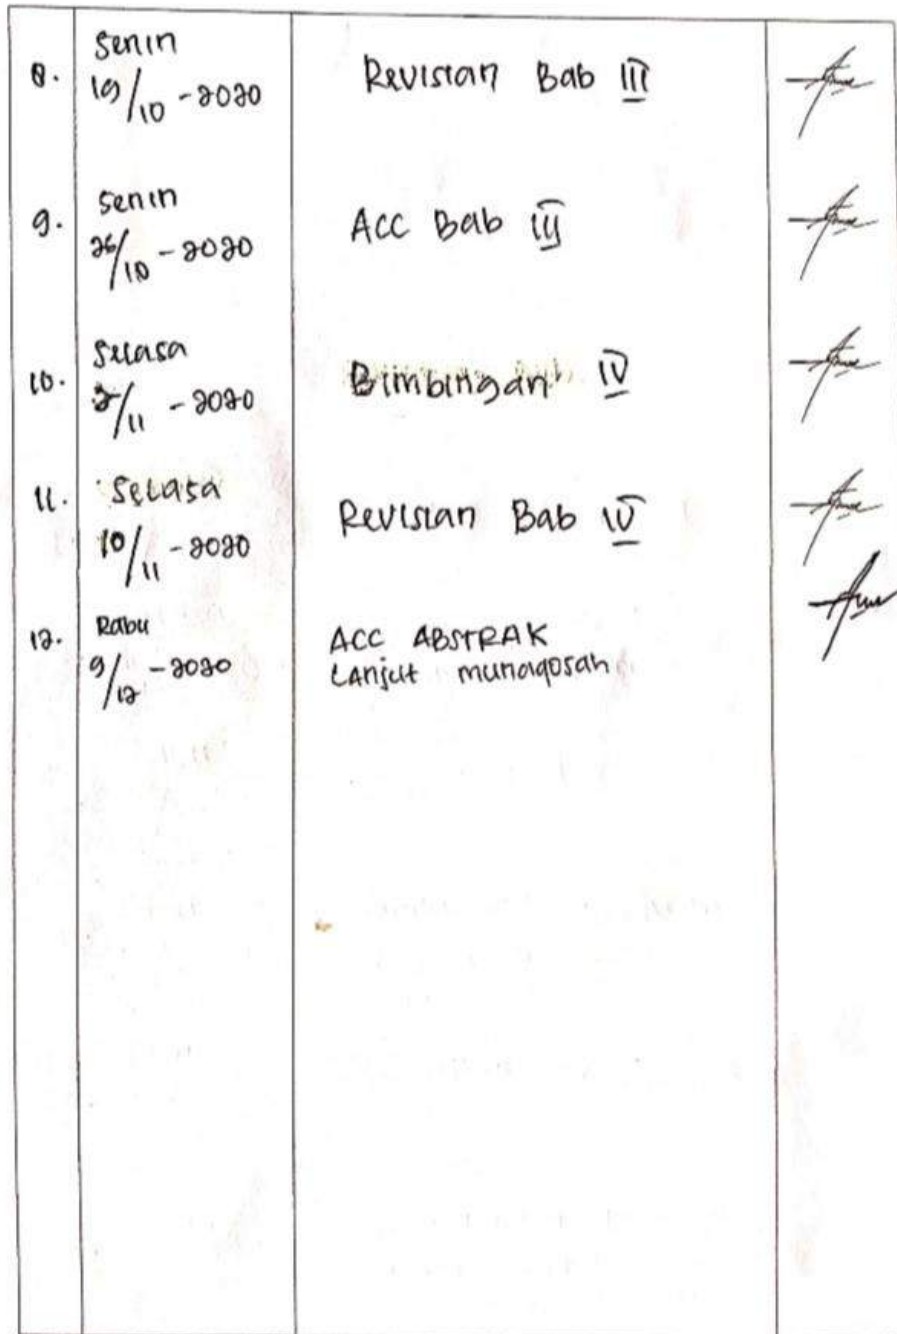 8.
Senin
19/10 - 2020
Revisian Bab III
9.
Senin
26/10 - 2020
ACC Bab III
10.
Selasa
/11 - 2020
Bimbingan IV
11.
Selasa
10/11 - 2020
Revisian Bab IV
12.
Rabu
9/12 - 2020
ACC ABSTRAK
Lanjut munaqosah